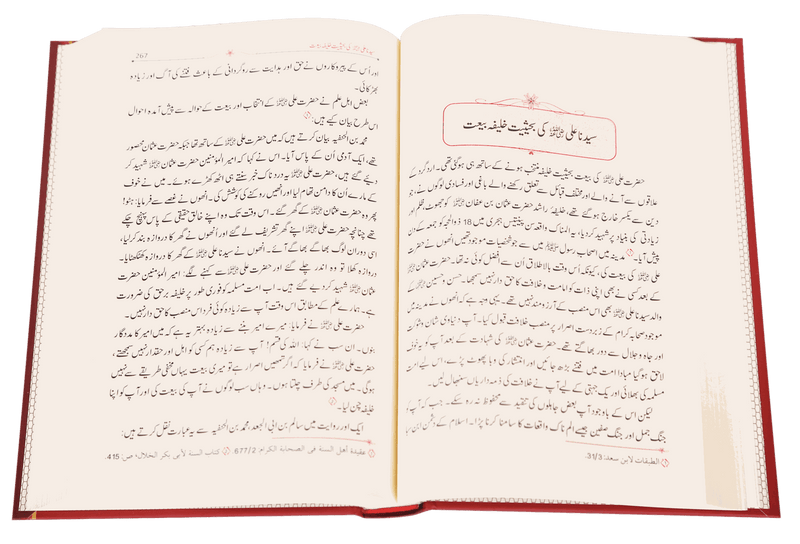 سیدنا علی ؓ کی بحیثیت خلیفہ بیعت
حضرت علی ؓ کی بیعت بحیثیت خلیفہ منتخب ہونے کے ساتھ ہی ہو گئی تھی۔ اردگرد کے
علاقوں سے آنے والے اور مختلف قبائل سے تعلق رکھنے والے باغی اور فسادی لوگوں نے، جو
دین سے یکسر خارج ہو گئے تھے، خلیفۂ راشد حضرت عثمان بن عفان ؓ کو جھوٹ، ظلم اور
زیادتی کی بنیاد پر شہید کر دیا۔ یہ المناک واقعہ سن پینتیس ہجری میں 18 ذوالحجہ کو جمعہ کے دن
پیش آیا۔ مدینہ میں اصحاب رسول ﷺ میں سے جو شخصیات موجود تھیں انھوں نے حضرت
علی ؓ کی بیعت کی، کیونکہ اُس وقت بالاطلاق اُن سے افضل کوئی نہ تھا۔ حضرت عثمان ؓ
کے بعد کسی نے بھی اپنی ذات کو امامت و خلافت کا حق دار نہیں سمجھا۔ حسن و حسین ؓ کے
والد سیدنا علی ؓ بھی اس منصب کے آرزومند نہیں تھے۔ یہی وجہ ہے کہ انھوں نے مدینہ میں
موجود صحابہ کرام کے زبردست اصرار پر منصب خلافت قبول کیا۔ آپ دنیاوی شان و شوکت
اور جاہ و جلال سے دور بھاگتے تھے۔ حضرت عثمان ؓ کی شہادت کے بعد آپ کو یہ خوف
لاحق ہو گیا مبادا امت میں فتنے بڑھ جائیں اور انتشار کی وبا پھوٹ پڑے، اس لیے امت
مسلمہ کی بھلائی اور یک جہتی کے لیے آپ نے خلافت کی ذمہ داریاں سنبھال لیں۔
لیکن اس کے باوجود آپ بعض جاہلوں کی تنقید سے محفوظ نہ رہ سکے۔ جب کہ آپ کو
جنگ جمل اور جنگ صفین جیسے الم ناک واقعات کا سامنا کرنا پڑا۔ اسلام کے دشمن ابن سبا
الطبقات لابن سعد: 31/3.
267
اور اُس کے پیروکاروں نے حق اور ہدایت سے روگردانی کے باعث فتنے کی آگ اور زیادہ
بھڑکائی۔
بعض اہل علم نے حضرت علی ؓ کے انتخاب اور بیعت کے حوالہ سے پیش آمدہ احوال
اس طرح بیان کیے ہیں:
محمد بن الحنفیہ بیان کرتے ہیں کہ میں حضرت علی ؓ کے ساتھ تھا جبکہ حضرت عثمان محصور
تھے، ایک آدمی اُن کے پاس آیا۔ اس نے کہا کہ امیر المؤمنین حضرت عثمان ؓ شہید کر
دیے گئے ہیں، حضرت علی ؓ یہ دردناک خبر سنتے ہی اٹھ کھڑے ہوئے۔ میں نے خوف
کے مارے اُن کا دامن تھام لیا اور انھیں روکنے کی کوشش کی۔ انھوں نے غصے سے فرمایا: ہٹو!
پھر وہ حضرت عثمان ؓ کے گھر گئے۔ اس وقت تک وہ اپنے خالق حقیقی کے پاس پہنچ چکے
تھے چنانچہ حضرت علی ؓ اپنے گھر تشریف لے گئے اور اُنھوں نے گھر کا دروازہ بند کر لیا،
اسی دوران لوگ بھاگے بھاگے آئے۔ انھوں نے سیدنا علی ؓ کے گھر کا دروازہ کھٹکھٹایا۔
دروازہ کھلا تو وہ اندر چلے گئے اور حضرت علی ؓ سے کہنے لگے: امیر المؤمنین حضرت
عثمان ؓ شہید کر دیے گئے ہیں۔ اب امت مسلمہ کو فوری طور پر خلیفہ برحق کی ضرورت
ہے۔ ہمارے علم کے مطابق اس وقت آپ سے زیادہ کوئی فرد اس منصب کا حق دار نہیں۔
حضرت علی ؓ نے فرمایا: میرے امیر بننے سے زیادہ بہتر یہ ہے کہ میں امیر کا مددگار
بنوں۔ ان سب نے کہا: اللہ کی قسم! آپ سے زیادہ ہم کسی کو اہل اور حقدار نہیں سمجھتے،
حضرت علی ؓ نے فرمایا کہ اگر تمھیں اصرار ہے تو میری بیعت یہاں مخفی طریقے سے نہیں
ہو گی۔ میں مسجد کی طرف چلتا ہوں۔ وہاں سب لوگوں نے آپ کی بیعت کی اور آپ کو اپنا
خلیفہ چن لیا۔
ایک اور روایت میں سالم بن ابی الجعد، محمد بن الحنفیہ سے یہ عبارت نقل کرتے ہیں:
عقيدة أهل السنة في الصحابة الكرام: 677/2. كتاب السنة لأبي بكر الخلال، ص: 415.